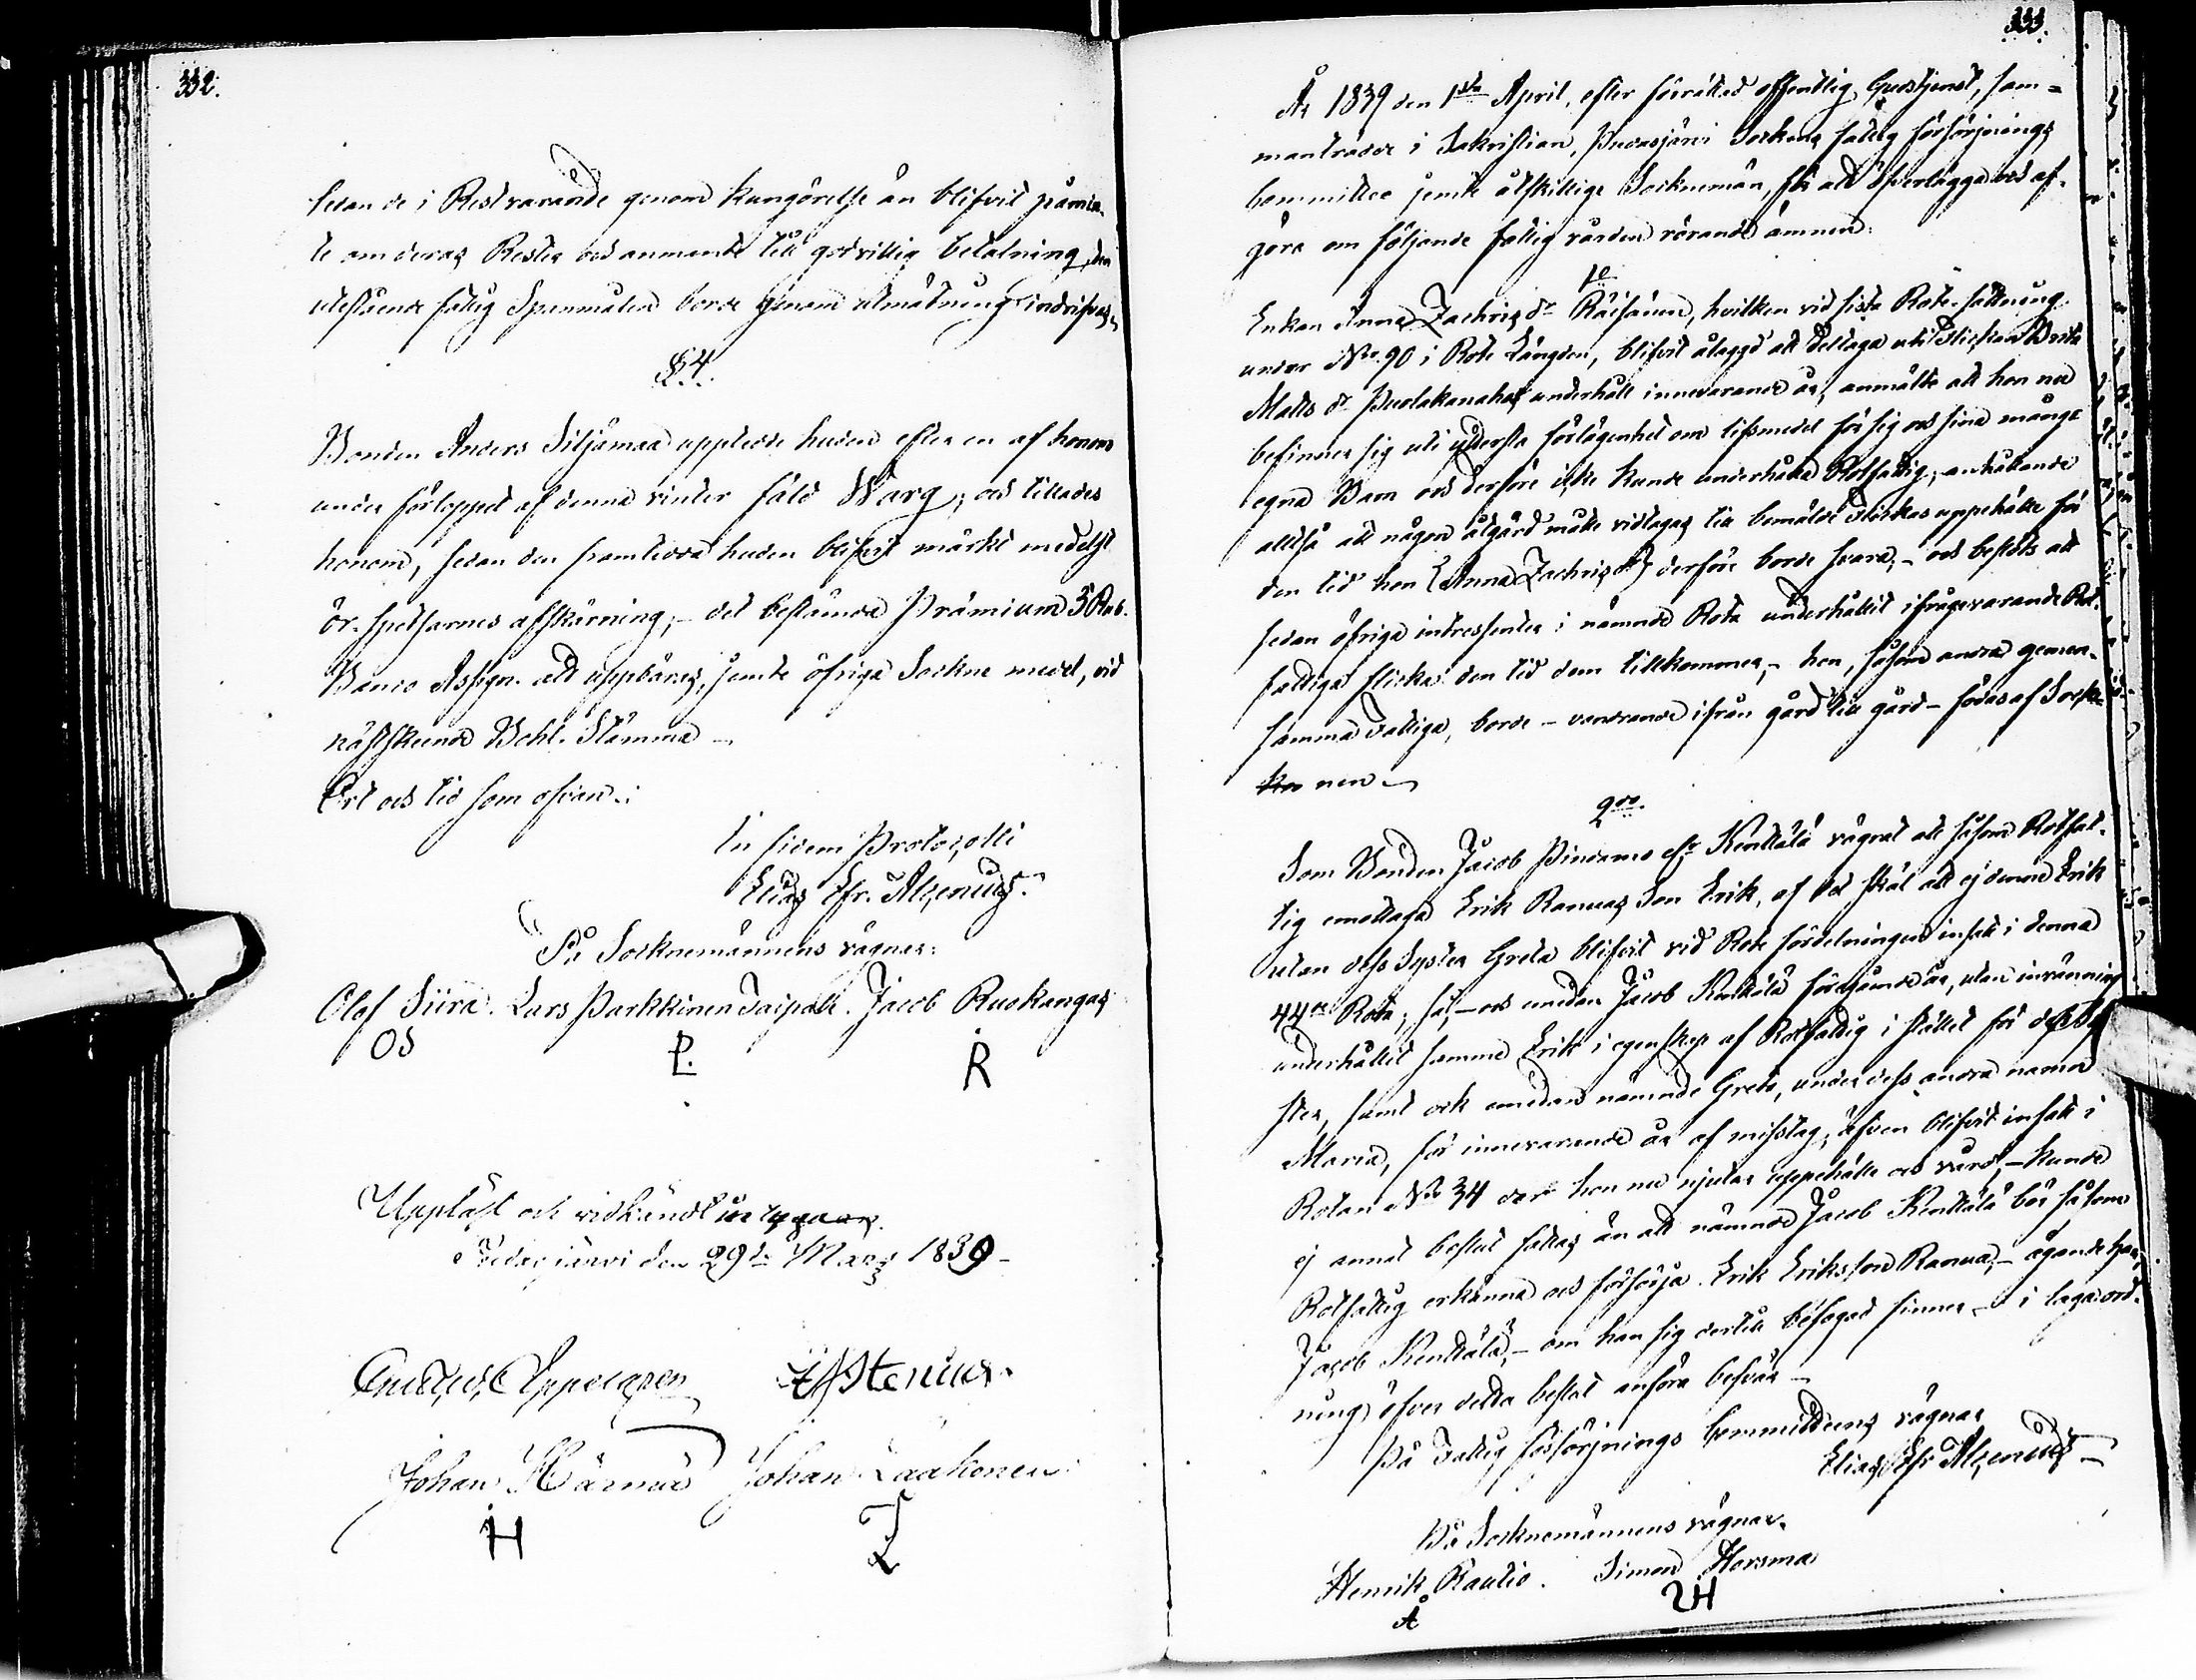 332.
sedan de i Restvarande genom kungörelse än blifvit påmin-
te om deras Rester och anmante till godvillig betalning, den
utestående fattig Spannmålen borde genom utmätning indrifvas.
§ 4.
Bonden Anders Siljämaa uppledde huden efter en af honom
under förloppet af denna vinter fäld Warg; och tillades
honom, sedan den framledda huden blifvit märkt medelst
ör-spetsarnes afskärning, - det bestämda Præmium 3 Rub.
Banco Assign. att uppbäras, jemte öfriga Sockne medel, vid
nästskeende Behl. Stämma -
Ort och tid som ofvan.:
In fidem Protocolli
Elias Efr. Alcenius.
På Socknemännens vägnar:
Olof Siira. Lars Parkkinen Taipale. Jacob Ruokangas
OS P. R
Uppläst och vidkändt
Pudasjärvi den 29de Mars 1839 -
Gustaf Appelgren
Johan Härmä Johan Laakonen
H L
333.
År 1839 den 1sta April, efter förrättad offentlig Gudstjenst, sam-
manträdde i Sakristian, Pudasjärvi Sockens fattig försörjnings
Committee jemte åtskillige Socknemän, för att öfverlägga och af-
göra om följande fattig vården rörande ämnen:
1o
Enkan Anna Zachris dr Räisänen, hvilken vid sista Rote-sättning
under No 90 i Rote Längden, blifvit ålaggd att deltaga uti Flickan Brita
Matts dr Puolakanahos underhåll innevarande år, anmälte att hon nu
befinner sig uti yttersta förlägenhet om lifsmedel för sig och sina många
egna Barn och derföre icke kunde underhålla Rotfattig; anhållande
alltså att någon åtgärd måtte vidtagas till bemälde Flickas uppehälle för
den tid hon (Anna Zachris dr) derföre borde svara; - och beslöts att
sedan öfriga intressenter i nämnde Rota underhållit ifrågavarande Rot-
fattiga flicka den tid dem tillkommer, - hon, såsom andra gemen-
samma fattiga, borde - vandrande ifrån gård till gård - födas af Sock-
nen -
2do.
Som Bonden Jacob Pindamo eller Kenttälä vägrat att såsom Rotfat-
tig emottaga Erik Ranuas Son Erik, af det skäl att ej denne Erik
utan dess Syster Greta blifvit vid Rote fördelningen insatt i denna
44de Rota; så, - och emedan Jacob Kenttälä förra året, utan invänning
underhållit samme Erik i egenskap af Rotfattig i stället för dess Sy-
ster, samt och emedan nämnde Greta, under dess andra namn
Maria, för innevarande år af misstag, äfven blifvit insatt i
Rotan No 34 der hon nu njutar uppehälle och vård, - kunde
ej annat beslut fattas än att nämnde Jacob Kenttälä bör såsom
Rotfattig erkänna och försörja Erik Eriksson Ranua; - ägande han,
Jacob Kenttälä, - om han sig dertill befogad finner - i laga ord-
ning öfver detta beslut anföra besvär -
På Fattig försörjnings Committéens vägnar
Elias Efr Alcenius -
På Socknemännens vägnar.
Henrik Rautio. Simon Horsma
A SH